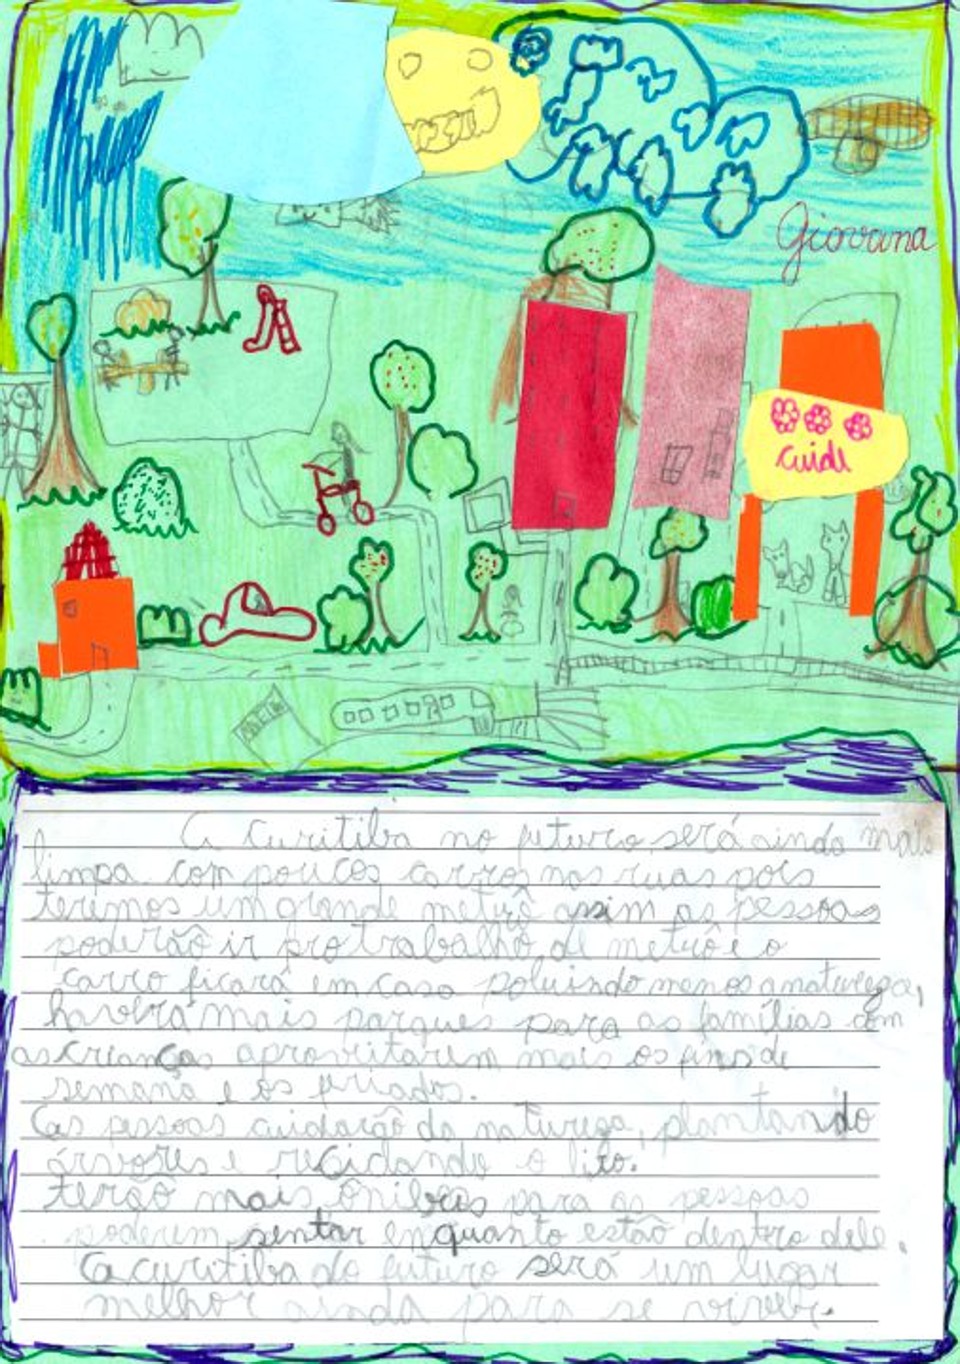 Giovana
cuide
A Curitiba no futuro será ainda mais
limpa com poucos carros nas ruas pois
teremos um grande metrô assim as pessoas
poderão ir pro trabalho de metrô e o
carro ficará em casa poluindo menos a natureza,
haverá mais parques para as famílias com
as crianças aproveitarem mais os fins de
semana e os friados.
As pessoas cuidarão da natureza, plantando
árvores e reciclando o lixo.
terão mais ônibus para as pessoas
poderem sentar enquanto estão dentro dele.
A curitiba do futuro será um lugar
melhor ainda para se viver.